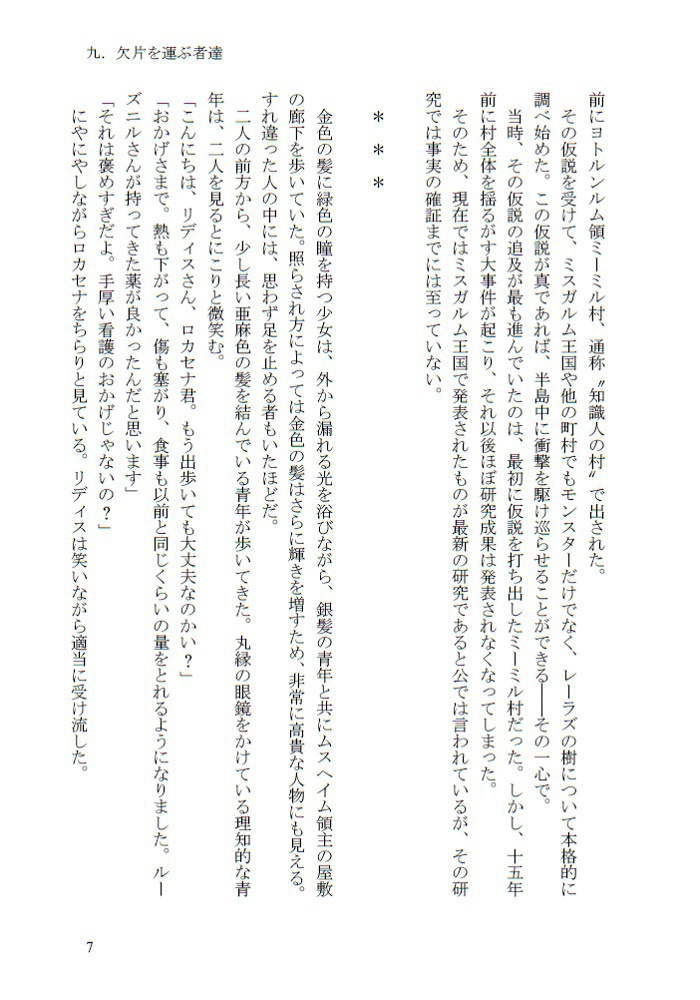 九．欠片を運ぶ者達
前にヨトルンルム領ミーミル村、通称〝知識人の村〟で出された。
その仮説を受けて、ミスガルム王国や他の町村でもモンスターだけでなく、レーラズの樹について本格的に
調べ始めた。この仮説が真であれば、半島中に衝撃を駆け巡らせることができる――その一心で。
当時、その仮説の追及が最も進んでいたのは、最初に仮説を打ち出したミーミル村だった。しかし、十五年
前に村全体を揺るがす大事件が起こり、それ以後ほぼ研究成果は発表されなくなってしまった。
そのため、現在ではミスガルム王国で発表されたものが最新の研究であると公では言われているが、その研
究では事実の確証までには至っていない。
＊　＊　＊
金色の髪に緑色の瞳を持つ少女は、外から漏れる光を浴びながら、銀髪の青年と共にムスヘイム領主の屋敷
の廊下を歩いていた。照らされ方によっては金色の髪はさらに輝きを増すため、非常に高貴な人物にも見える。
すれ違った人の中には、思わず足を止める者もいたほどだ。
二人の前方から、少し長い亜麻色の髪を結んでいる青年が歩いてきた。丸縁の眼鏡をかけている理知的な青
年は、二人を見るとにこりと微笑む。
「こんにちは、リディスさん、ロカセナ君。もう出歩いても大丈夫なのかい？」
「おかげさまで。熱も下がって、傷も塞がり、食事も以前と同じくらいの量をとれるようになりました。ルー
ズニルさんが持ってきた薬が良かったんだと思います」
「それは褒めすぎだよ。手厚い看護のおかげじゃないの？」
にやにやしながらロカセナをちらりと見ている。リディスは笑いながら適当に受け流した。
7